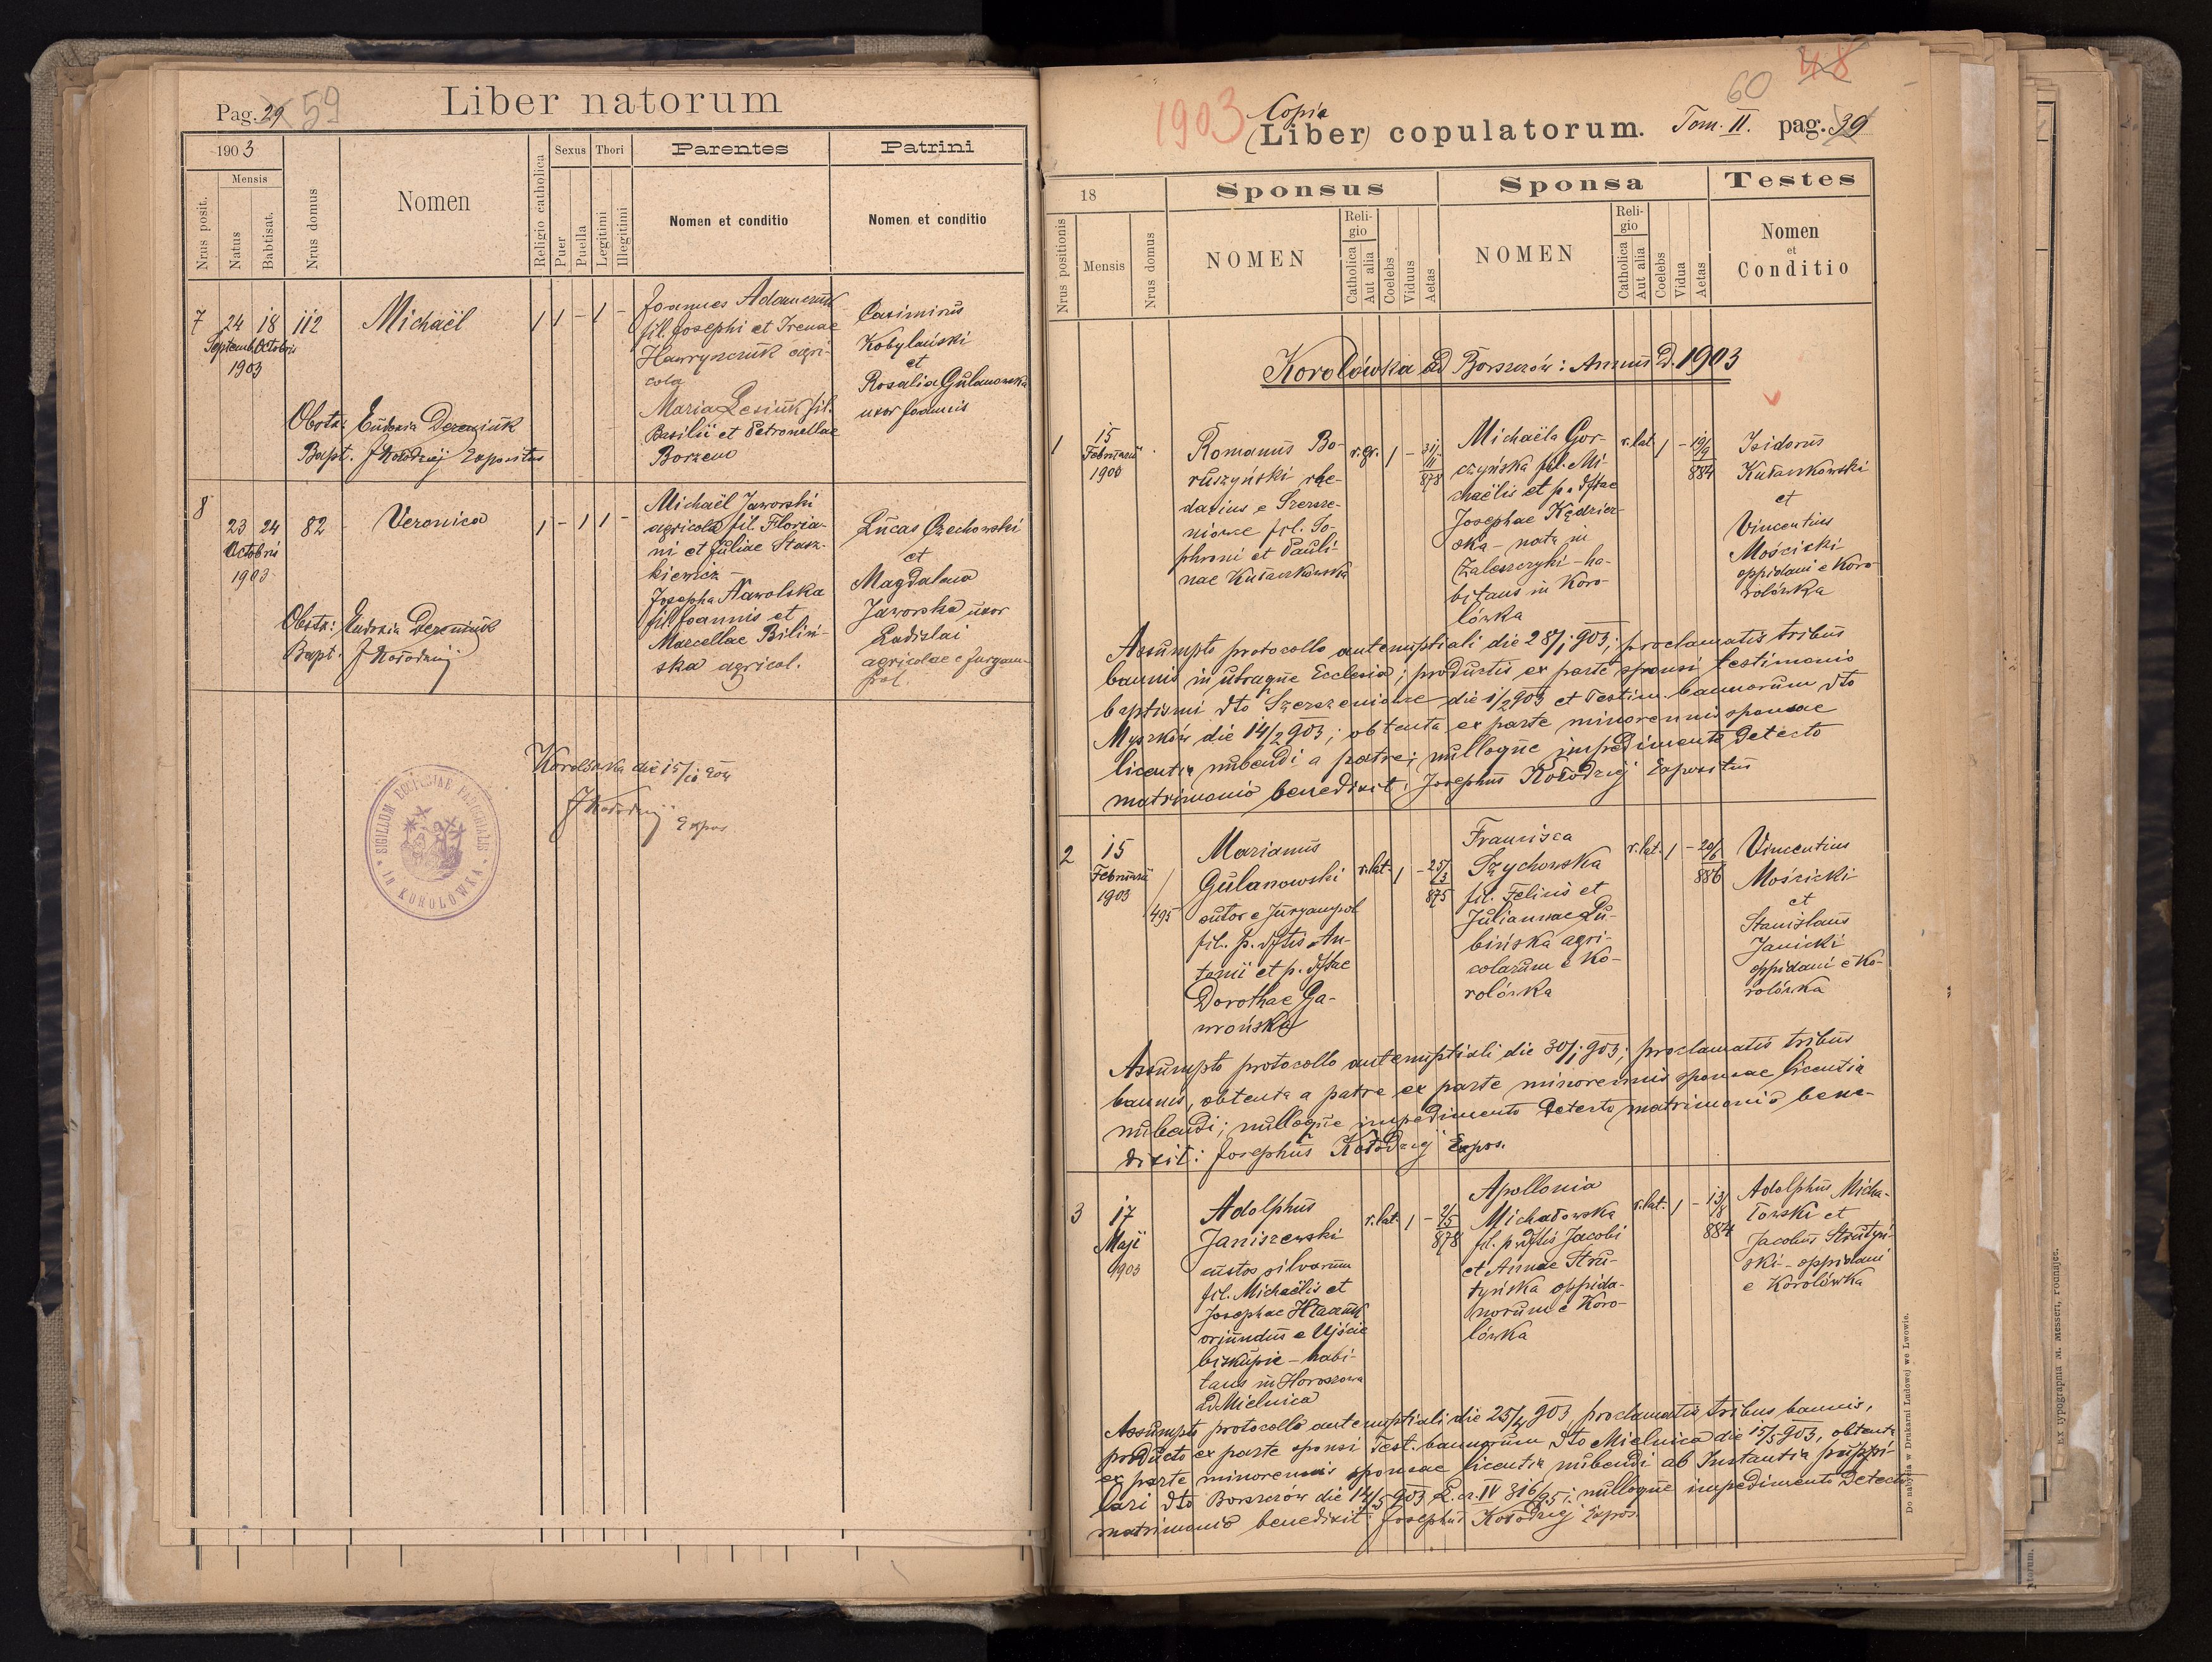 Pag. 29 59
Liber natorum
1903
Mensis
Nrus posit.
Natus
Babtisat.
Nrus domus
Nomen
Religio catholica
Sexus
Puer
Puella
Thori
Legitimi
Illegitimi
Parentes
Nomen et conditio
Patrini
Nomen et conditio
7 24 18 112 Michaël 1 1 - 1 -
Septemb. Octobris
1903
Joannes Adamczuk
fil. Josephi et Irenae
Hawryszczuk agri-
cola
Maria Lesiuk fil.
Basilii et Petronellae
Borzeno
Casimirus
Kobylański
et
Rosalia Gulanowska
uxor Joannis
Obstx: Eudoxia Dereniuk
Bapt. J Kołodziej Expositus
8 23 24 82 Veronica 1 - 1 1 -
Octobris
1903
Michaël Jaworski
agricola fil. Floria-
ni et Juliae Stasz-
kiewicz -
Josepha Nawolska
fil. Joannis et
Marcellae Biliń-
ska agricol.
Lucas Orzechowski
et
Magdalena
Jaworska uxor
Ladislai
agricolae e Jurgam-
pol.
Obstx: Eudoxia Dereniuk
Bapt. J Kołodziej
Korolówka die 15/ 904
J Kołodziej
Expos.
SIGILLUM ECCLESIAE PAROCHIALIS
IN KOROLÓWKA
1903
Copia
(Liber) copulatorum. Tom. II. pag. 39
60 48
18
Nrus positionis
Mensis
Nrus domus
Sponsus
NOMEN
Religio
Catholica
Aut alia
Coelebs
Viduus
Aetas
Sponsa
NOMEN
Religio
Catholica
Aut alia
Coelebs
Vidua
Aetas
Testes
Nomen
et
Conditio
Korolówka ad Borszczów: Annus D. 1903
1 15
Februarii
1903
Romanus Bo-
ruszyński rhe-
darius e Szersze-
niowce fil. So-
phroni et Pauli-
nae Kułaczkowska
r. gr. 1 - 878
Michaëla Gor-
czyńska fil. Mi-
chaëlis et p. dftae
Josephae Kędzier-
ska - nata in
Zaleszczyki - ha-
bitans in Koro-
lówka
r. lat. 1 - 19/9 884
Isidorus
Kułaczkowski
et
Vincentius
Mościcki
oppidani e Koro-
rolówka
Assumpto protocollo antenuptiali die 28/1 903; proclamatis tribus
bannis in utraque Ecclesia; productis ex parte sponsi testimonio
baptismi dto Szerszeniowce die 1/2 903 et Testim. bannorum dto
Myszków die 14/2 903; obtenta ex parte minorennis sponsae
licentia nubendi a patre; nulloque impedimento detecto
matrimonio benedixit: Josephus Kołodziej Expositus
2 15
Februarii
1903
495
Marianus
Gulanowski
sutor e Jurgampol
fil. p. dftis An-
tonii et p. dftae
Dorothae Ga-
wrońska
r. lat. 1 - 25/3 875
Francisca
Szychowska
fil. Felicis et
Juliannae Lu-
bińska agri-
colarum e Ko-
rolówka
r. lat. 1 - 29/6 886
Vincentius
Mościcki
et
Stanislaus
Janicki
oppidani e Ko-
rolówka
Assumpto protocollo antenuptiali die 30/1 903; proclamatis tribus
bannis, obtenta a patre ex parte minorennis sponsae licentia
nubendi; nulloque impedimento detecto matrimonio bene-
dixit: Josephus Kołodziej Expos.
3 17
Maji
1903
Adolphus
Janiszewski
custos silvarum
fil. Michaëlis et
Josephae
oriundus e Ujście
biskupie - habi-
tans in Horoszowa
ad Mielnica
r. lat. 1 - 2/5 878
Apollonia
Michałowska
fil. p. dftis Jacobi
et Annae Stru-
tyńska oppida-
norum e Koro-
lówka
r. lat. 1 - 13/8 884
Adolphus Micha-
łowski et
Jacobus Strutyń-
ski - oppidani
e Korolówka
Assumpto protocollo antenuptiali die 25/4 903, proclamatis tribus bannis,
producto ex parte sponsi Test. bannorum dto Mielnica die 15/5 903, obtenta
ex parte minorennis sponsae licentia nubendi ab Instantia pupil-
lari dto Borszczów die 14/5 903 L. cz. IV 316/95; nulloque impedimento detecto
matrimonio benedixit: Josephus Kołodziej Expos.
Do nabycia w Drukarni Ludowej we Lwowie.